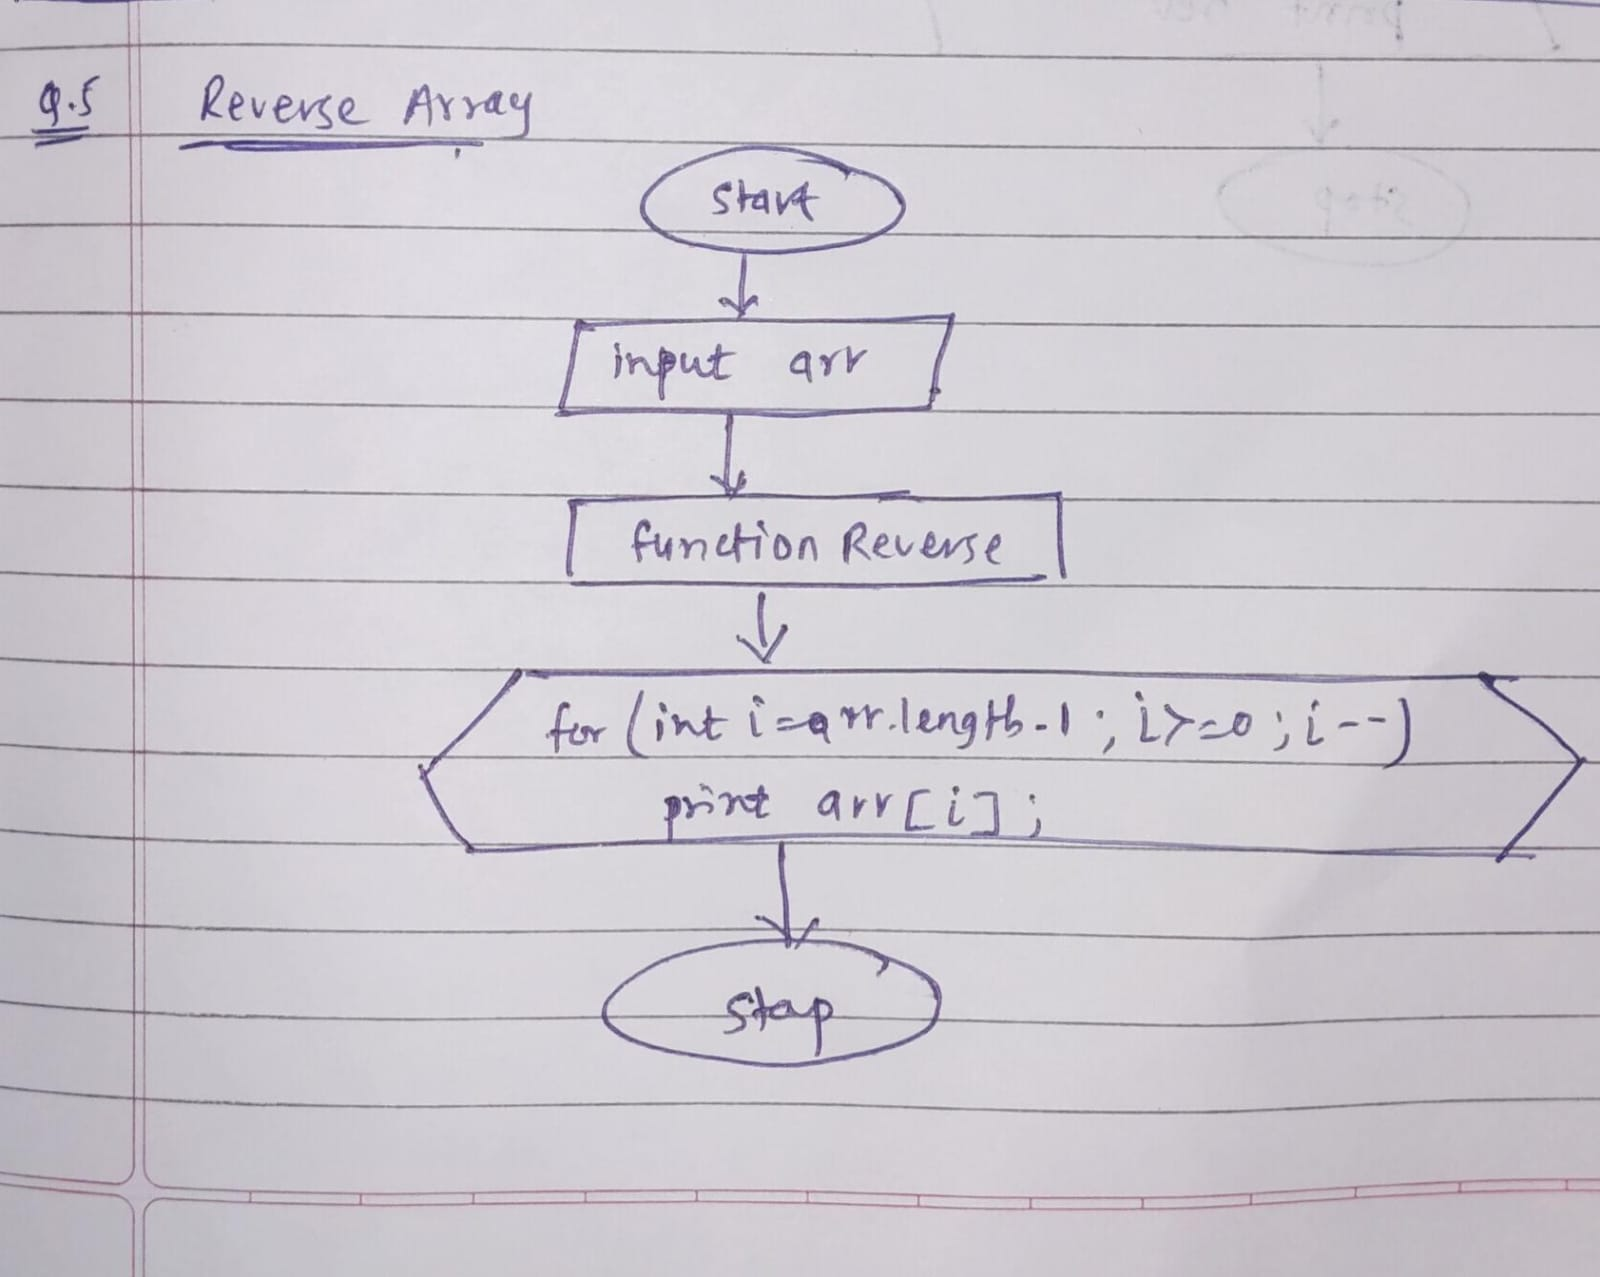 Q.5 Reverse Array
start
input arr
function Reverse
for (int i=arr.length-1 ; i>=0 ; i--)
print arr[i] ;
stop